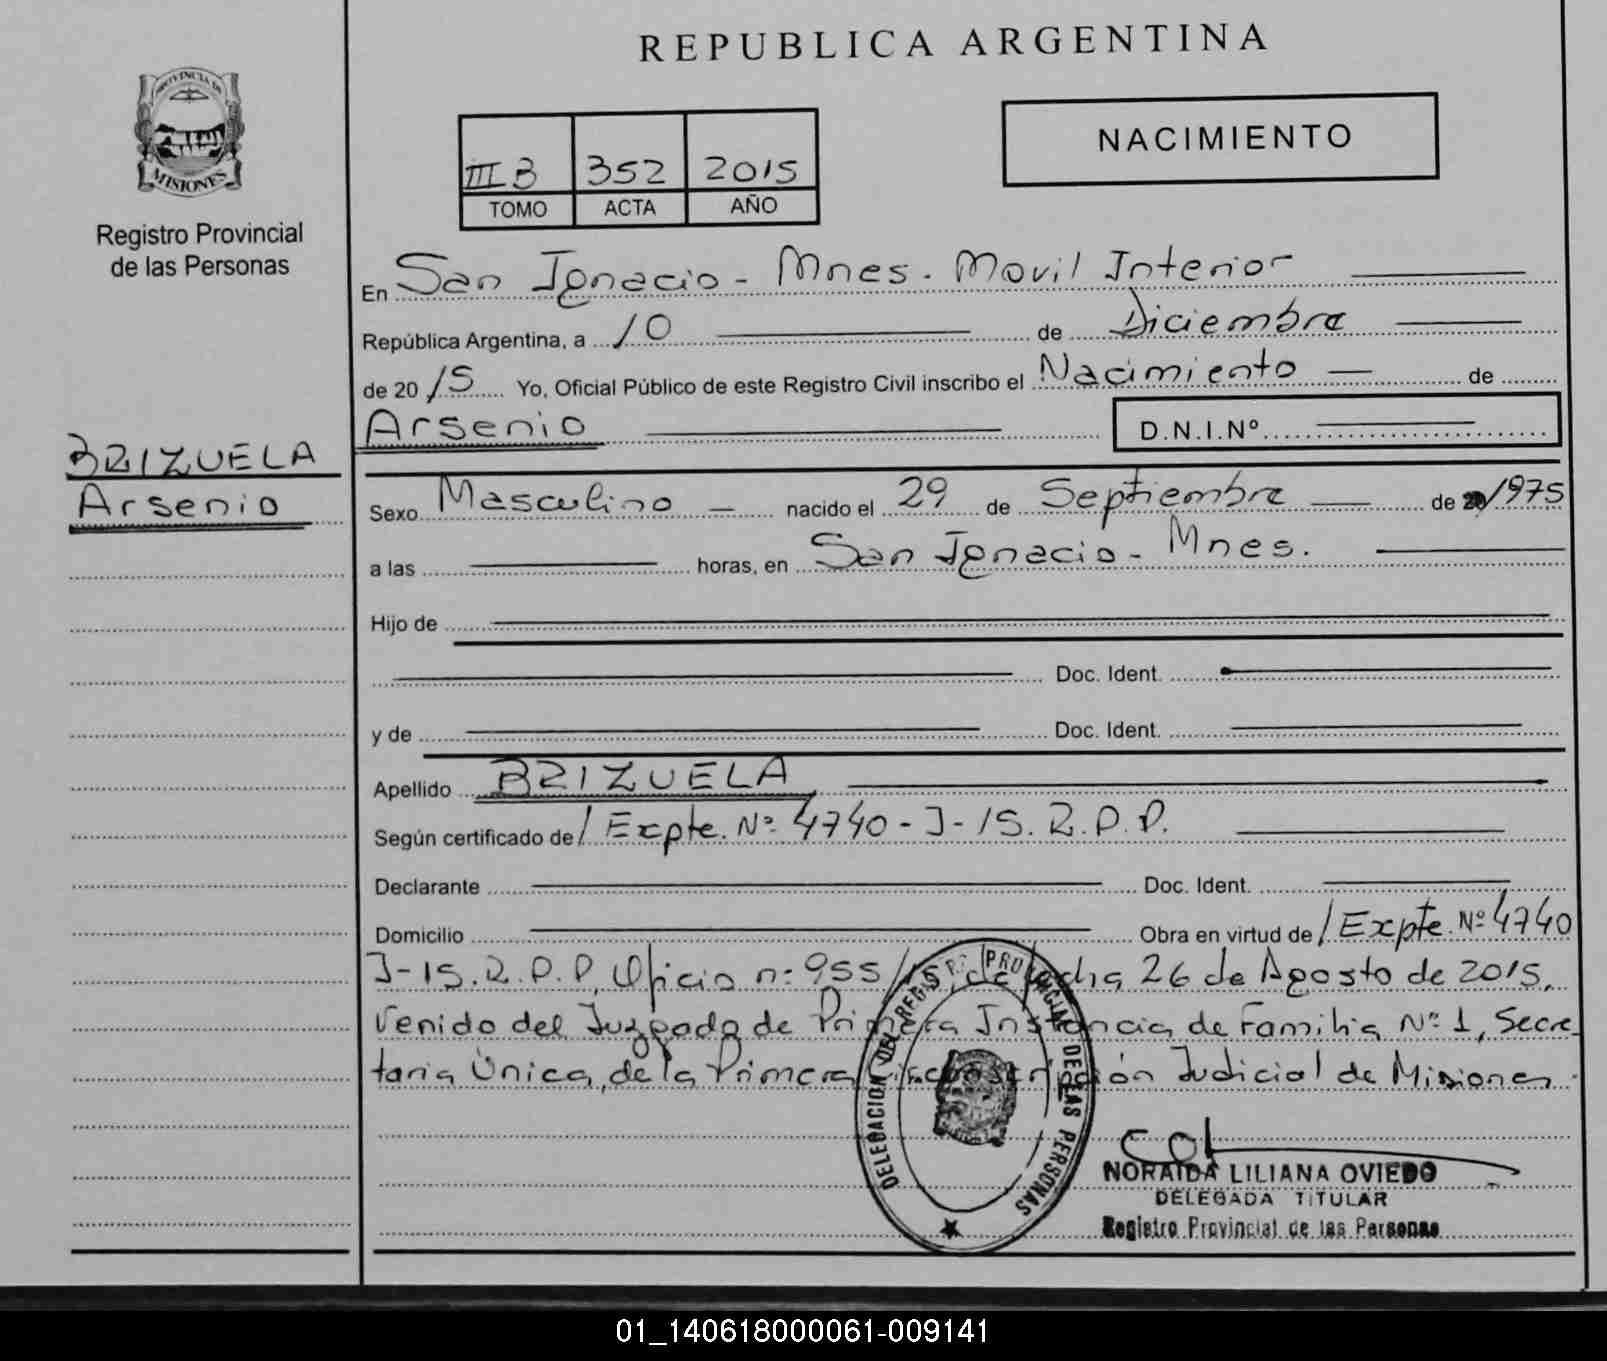 REPUBLICA ARGENTINA
PROVINCIA DE
MISIONES
Registro Provincial
de las Personas
III B 352 2015
TOMO ACTA AÑO
NACIMIENTO
En San Ignacio - Mnes. Movil Interior
República Argentina, a 10 de Diciembre
de 2015 Yo, Oficial Público de este Registro Civil inscribo el Nacimiento de
Arsenio D.N.I.Nº
BRIZUELA
Arsenio
Sexo Masculino nacido el 29 de Septiembre de 20/1975
a las horas, en San Ignacio - Mnes.
Hijo de
Doc. Ident.
y de Doc. Ident.
Apellido BRIZUELA
Según certificado de / Expte. Nº 4740 - J - 15. R. P. P.
Declarante Doc. Ident.
Domicilio Obra en virtud de / Expte. Nº 4740
J-15. R. P. P, Oficio nº 955/ de fecha 26 de Agosto de 2015,
venido del Juzgado de Primera Instancia de Familia Nº 1, Secre-
taria Única, de la Primera Circunscripción Judicial de Misiones.
DELEGACION DEL REGISTRO PROVINCIAL DE LAS PERSONAS
NORAIDA LILIANA OVIEDO
DELEGADA TITULAR
Registro Provincial de las Personas
01_140618000061-009141